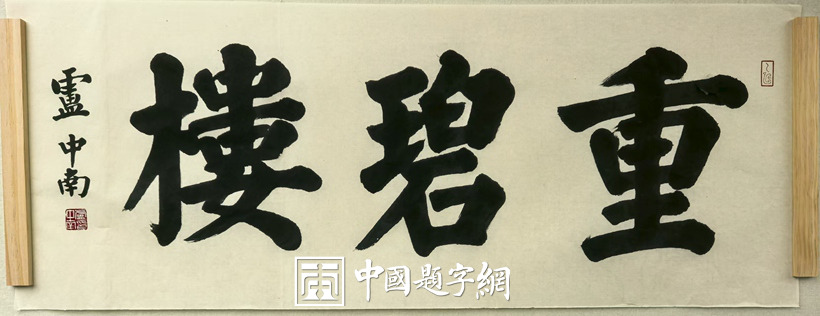 重碧樓
盧中南
中國題字網